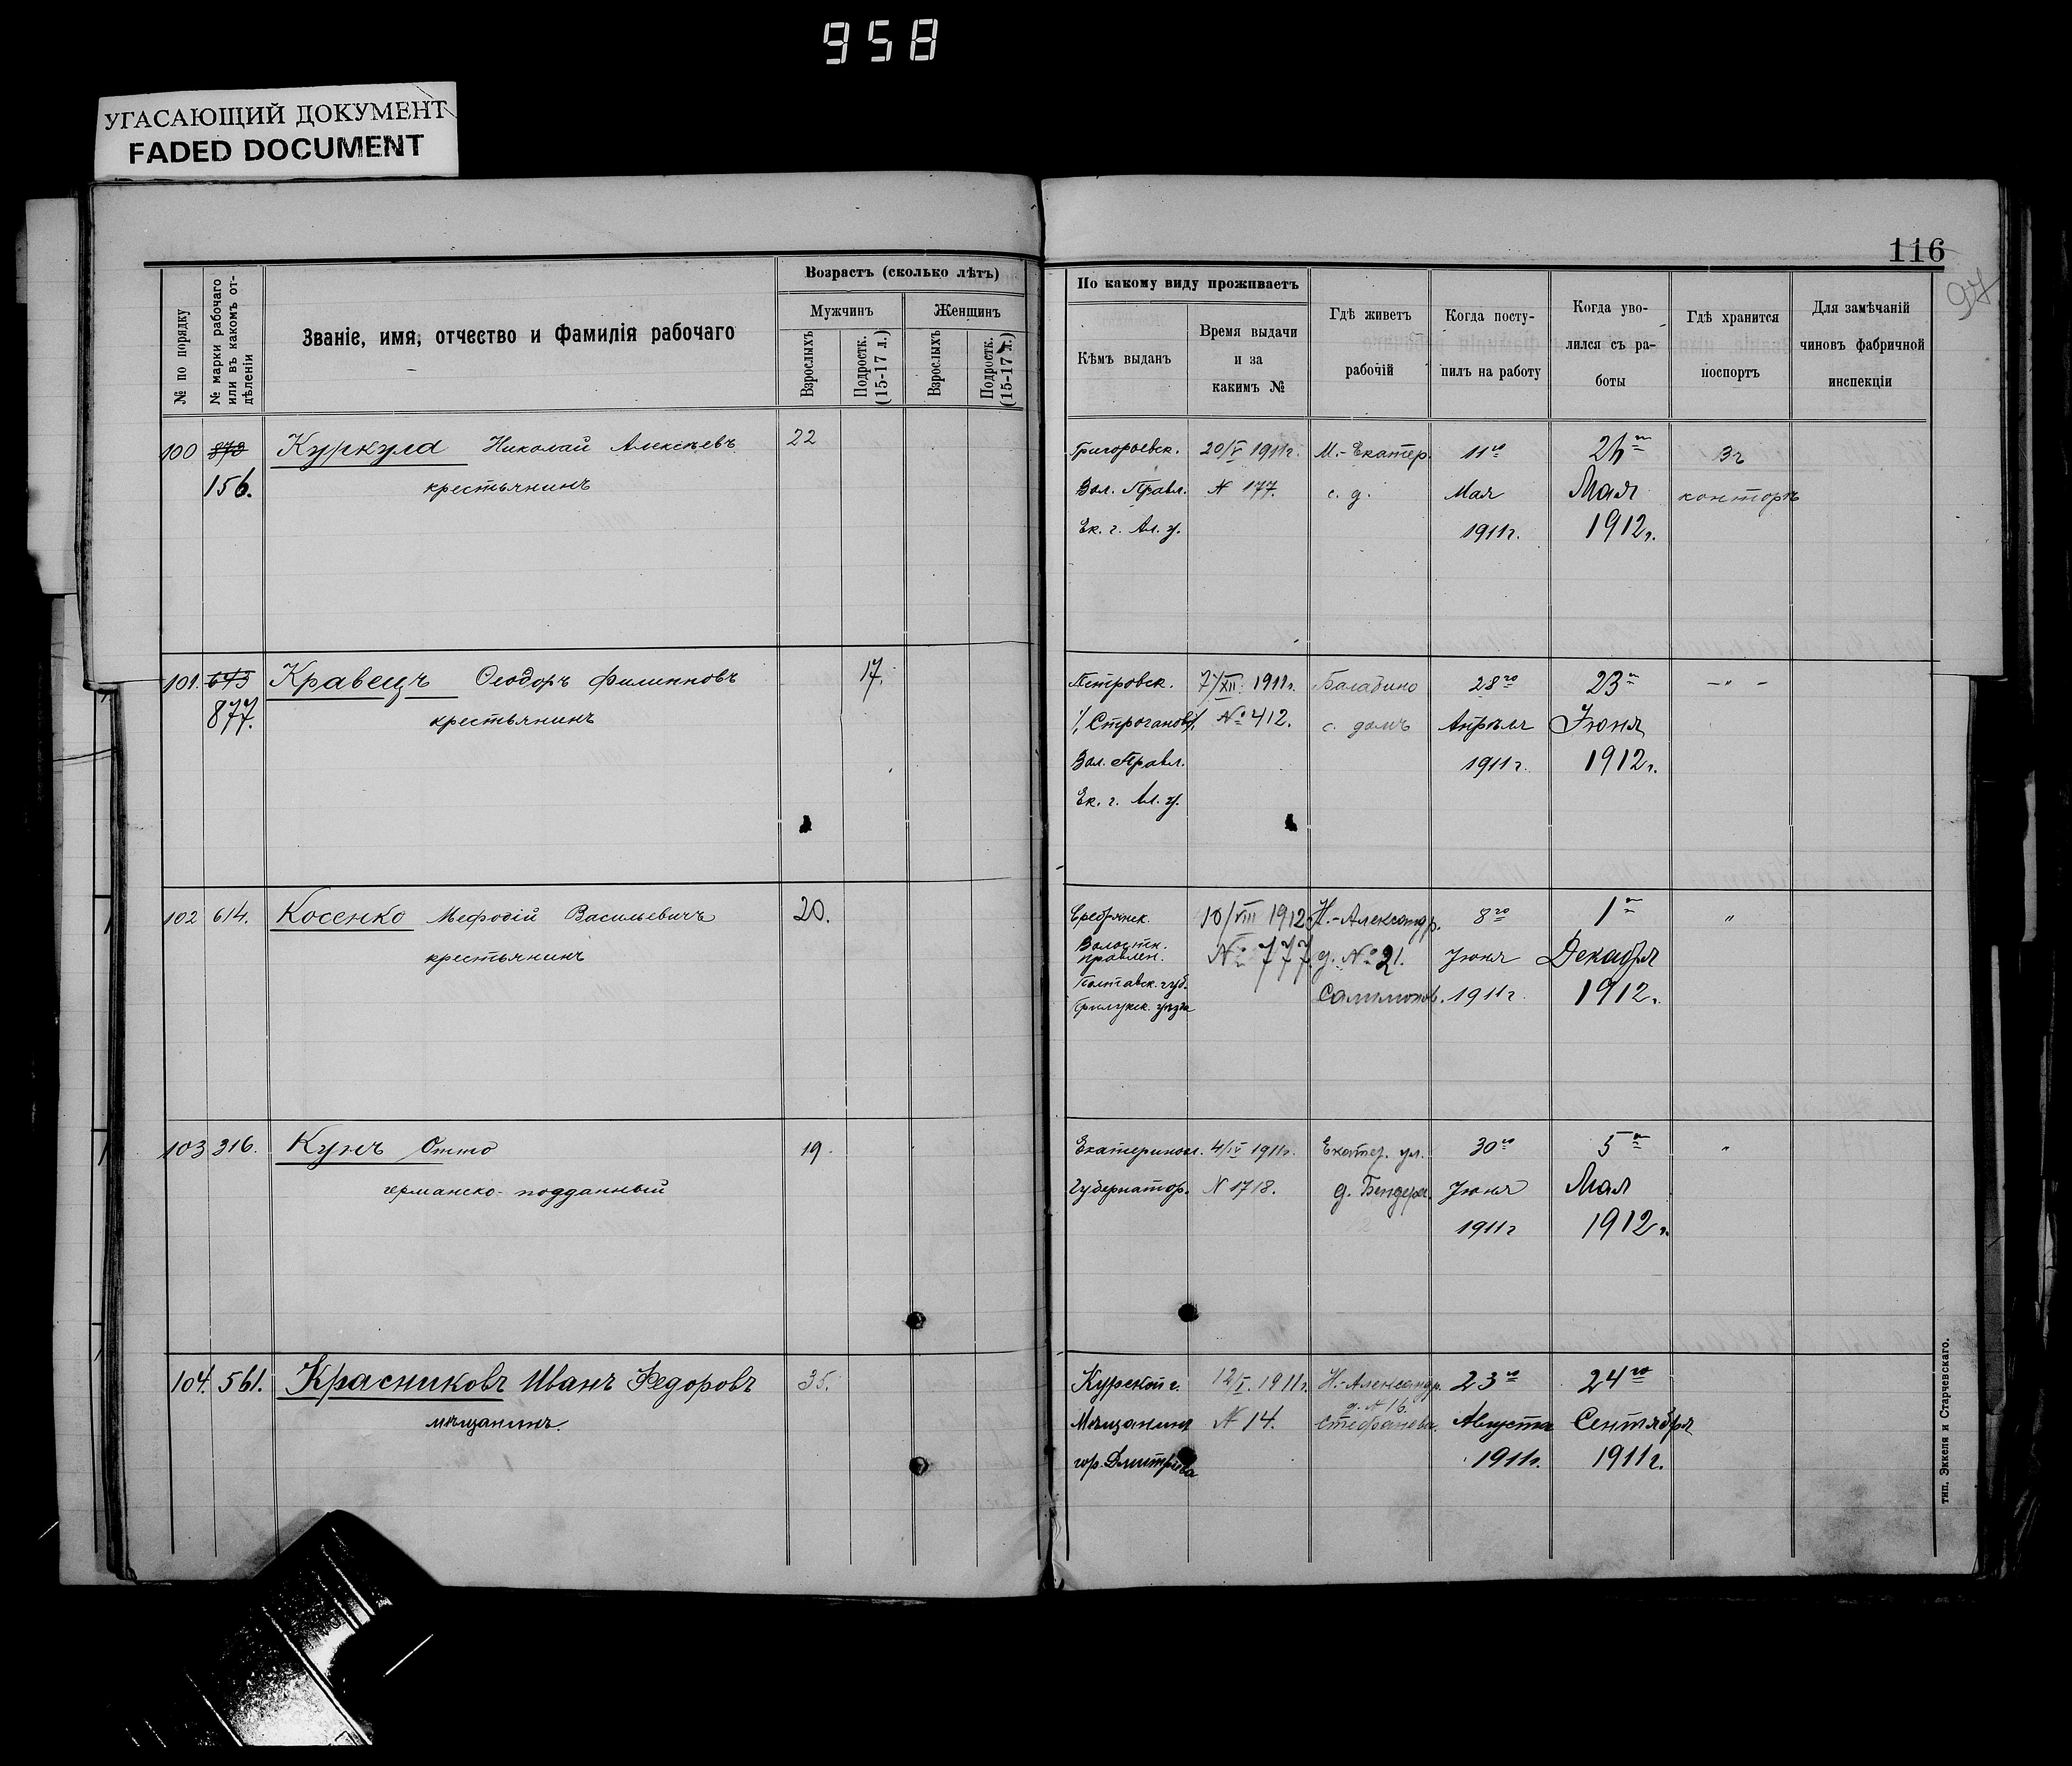 958
УГАСАЮЩИЙ ДОКУМЕНТ
FADED DOCUMENT
116
97
№ по порядку
№ марки рабочаго
или въ какомъ от-
дѣленіи
Званіе, имя, отчество и фамилія рабочаго
Возрастъ (сколько лѣтъ)
Мужчинъ
Женщинъ
Взрослыхъ
Подростк.
(15-17 л.)
Взрослыхъ
Подростк.
(15-17 л.)
По какому виду проживаетъ
Кѣмъ выданъ
Время выдачи
и за
какимъ №
Гдѣ живетъ
рабочій
Когда посту-
пилъ на работу
Когда уво-
лился съ ра-
боты
Гдѣ хранится
поспортъ
Для замѣчаній
чиновъ фабричной
инспекціи
100 878 Куркула Николай Алексѣевъ 22
156. крестьянинъ
Григорьевск. 20/V 1911г. М.-Екатер. 11го 26го Въ
Вол. Правл. № 177. с. д. Мая Мая конторѣ
Ек. г. Ал. у. 1911г. 1912г.
101. 673 Кравецъ Ѳеодоръ Филипповъ 17.
877. крестьянинъ
Петровск. 7/XII 1911г. Балабино 28го 23го – " –
/Строганов/ № 412. с. домъ Апрѣля Іюня
Вол. Правл. 1911г. 1912г.
Ек. г. Ал. у.
102 614. Косенко Мефодій Васильевичъ 20.
крестьянинъ
10/VIII 1912 Н.-Александр. 8го 1го "
Волостн.
правлен. № 777. д. № 21. Іюня Декабря
Полтавск. губ. 1911г. 1912г.
Прилукск. уѣзда
103 316. Кунъ Отто 19.
германско-подданный
Екатеринол. 4/IV 1911г. Екатер. ул. 30го 5го "
Губернатор. № 1718. д. Бендера. Іюня Мая
1911г 1912г.
104. 561. Красниковъ Иванъ Федоровъ 35.
мѣщанинъ.
Курской г. 12/I. 1911г. Н.-Александр. 23го 24го
д. № 16.
Мѣщанина № 14. Стефанова. Августа Сентября
гор. Дмитріева 1911г. 1911г.
тип. Эккеля и Старчевскаго.